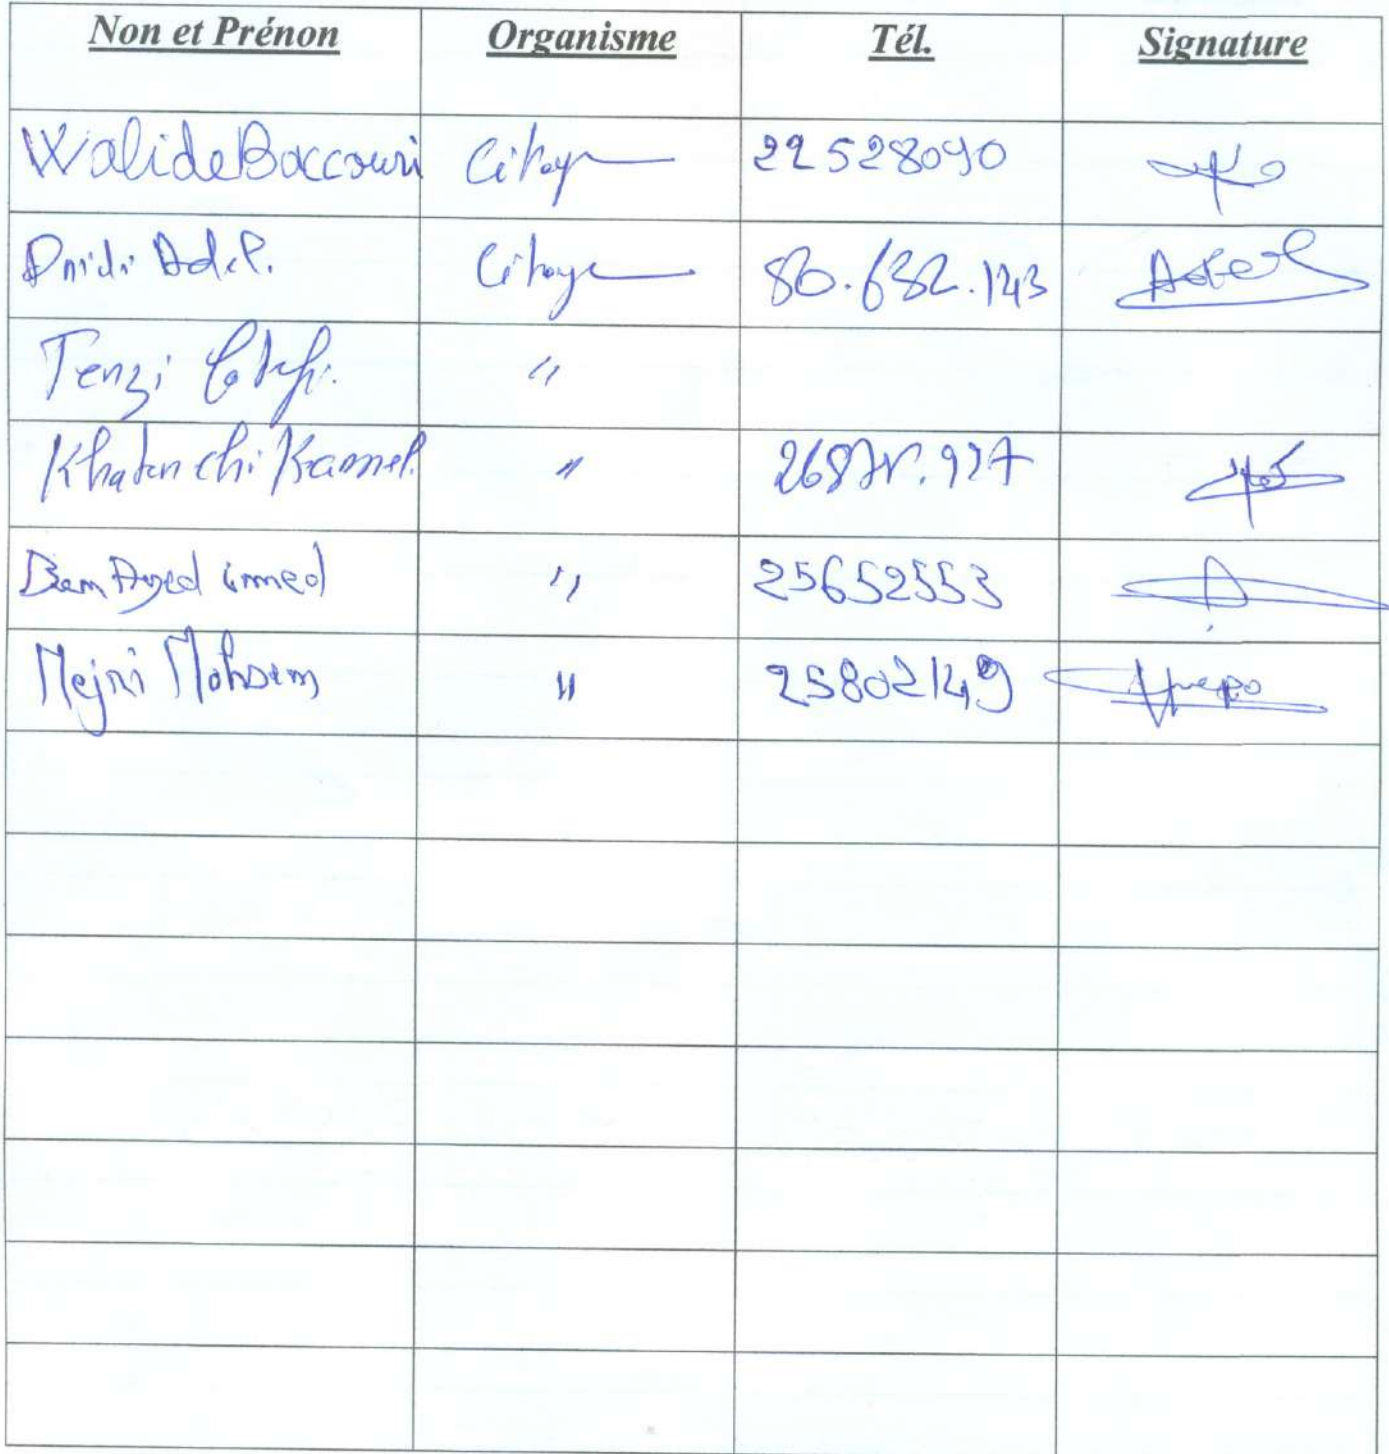 Non et Prénon Organisme Tél. Signature
Walide Baccouri Citoyen 22528090
Dridi Adel. Citoyen 80.632.143 Adel
Tenzi "
Kamel. "
Ben Ayed imed " 25652553
Mejri Mohsem " 25802149